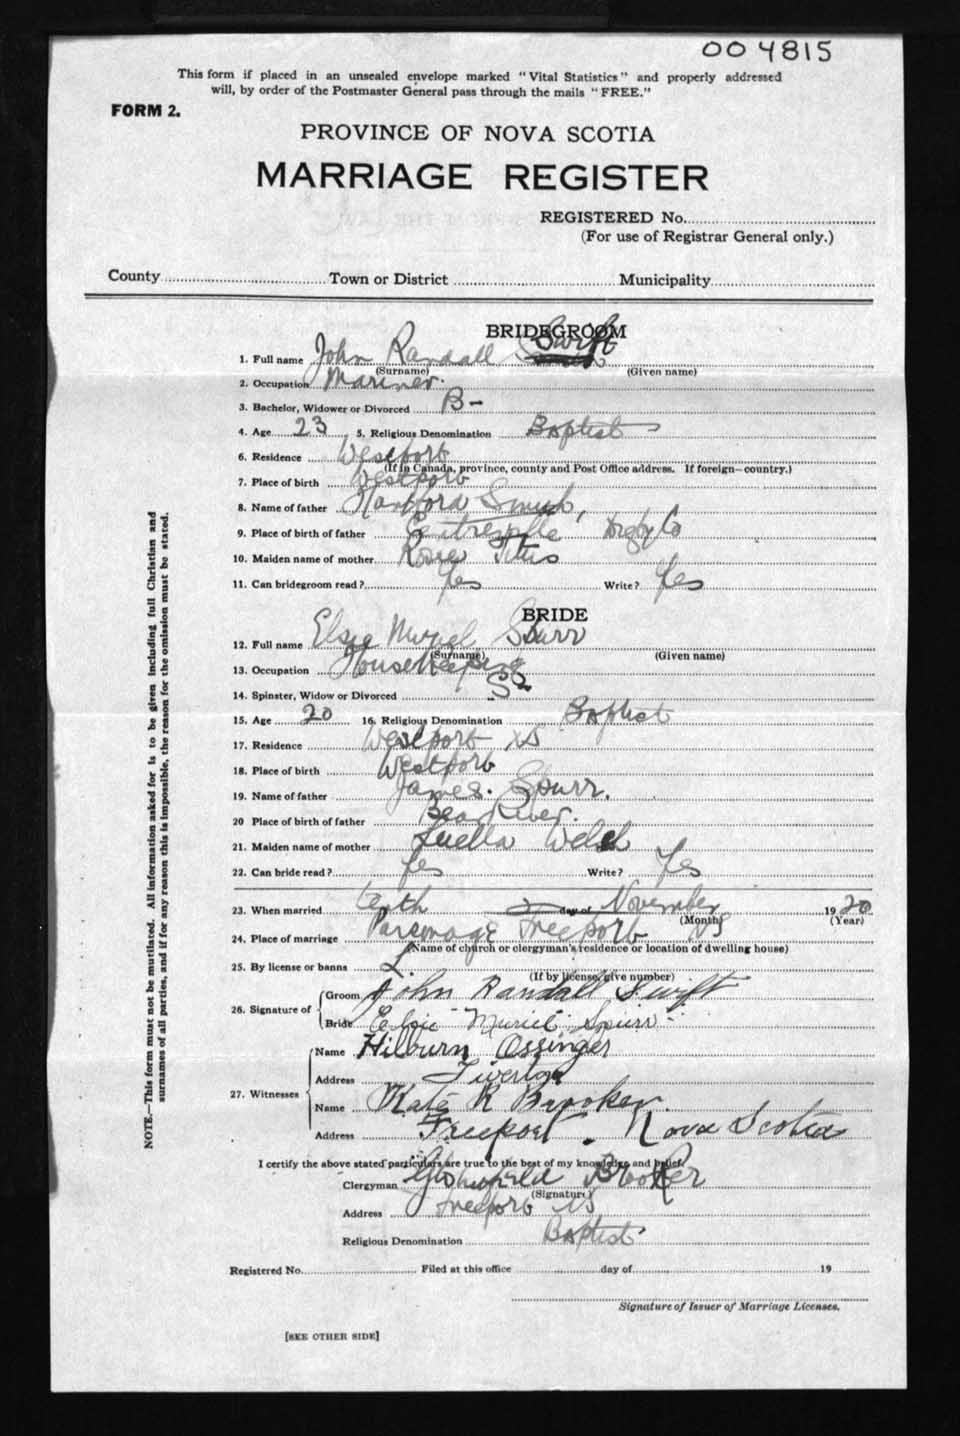 004815
This form if placed in an unsealed envelope marked "Vital Statistics" and properly addressed
will, by order of the Postmaster General pass through the mails "FREE."
FORM 2.
PROVINCE OF NOVA SCOTIA
MARRIAGE REGISTER
REGISTERED No.
(For use of Registrar General only.)
County Town or District Municipality
BRIDEGROOM
1. Full name John Randall Swift
(Surname) (Given name)
2. Occupation Mariner.
3. Bachelor, Widower or Divorced B-
4. Age 23 5. Religious Denomination Baptist
6. Residence Westport
(If in Canada, province, county and Post Office address. If foreign—country.)
7. Place of birth Westport
8. Name of father
9. Place of birth of father Centreville Digby Co
10. Maiden name of mother Rose Titus
11. Can bridegroom read? Yes Write? Yes
BRIDE
12. Full name Elsie Muriel Spurr
(Surname) (Given name)
13. Occupation Housekeeping
14. Spinster, Widow or Divorced S-
15. Age 20 16. Religious Denomination Baptist
17. Residence Westport NS
18. Place of birth Westport
19. Name of father James. Spurr.
20 Place of birth of father Bear River.
21. Maiden name of mother Luella Welsh
22. Can bride read? Yes Write? Yes
23. When married tenth day of November 1920
(Month) (Year)
24. Place of marriage Parsonage Freeport NS
(Name of church or clergyman's residence or location of dwelling house)
25. By license or banns L
(If by license, give number)
26. Signature of Groom John Randall Swift
Bride Elsie Muriel Spurr
27. Witnesses
Name Hilburn Ossinger
Address Tiverton
Name Kate R Brooker.
Address Freeport. Nova Scotia
I certify the above stated particulars are true to the best of my knowledge and belief.
Clergyman Brooker
(Signature)
Address Freeport NS
Religious Denomination Baptist
Registered No. Filed at this office day of 19
Signature of Issuer of Marriage Licenses.
[SEE OTHER SIDE]
NOTE.—This form must not be mutilated. All information asked for is to be given including full Christian and
surnames of all parties, and if for any reason this is impossible, the reason for the omission must be stated.